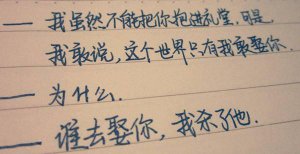 — 我虽然不能把你抱进礼堂.可是.
我敢说,这个世界只有我敢娶你.
— 为什么.
— 谁去娶你,我杀了他.